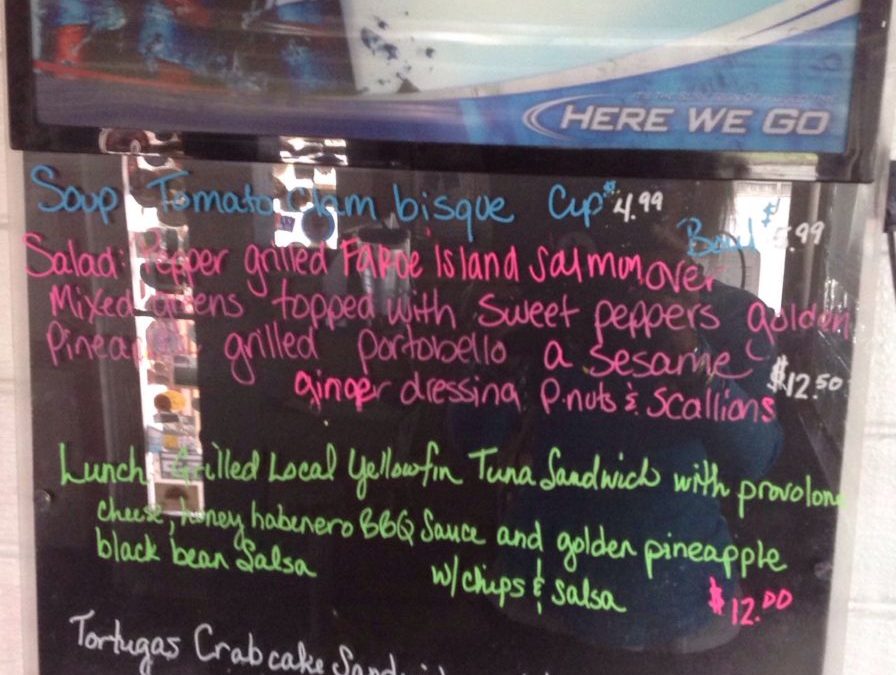 HERE WE GO
Soup Tomato Clam bisque Cup $4.99
Bowl $5.99
Salad: Pepper grilled Faroe Island Salmon over
Mixed greens topped with Sweet peppers golden
Pineapple grilled portobello a Sesame
ginger dressing P.nuts & Scallions $12.50
Lunch Grilled Local Yellowfin Tuna Sandwich with provolone
cheese, honey habenero BBQ Sauce and golden pineapple
black bean Salsa w/ chips & salsa $12.00
Tortugas Crab cake Sandwich